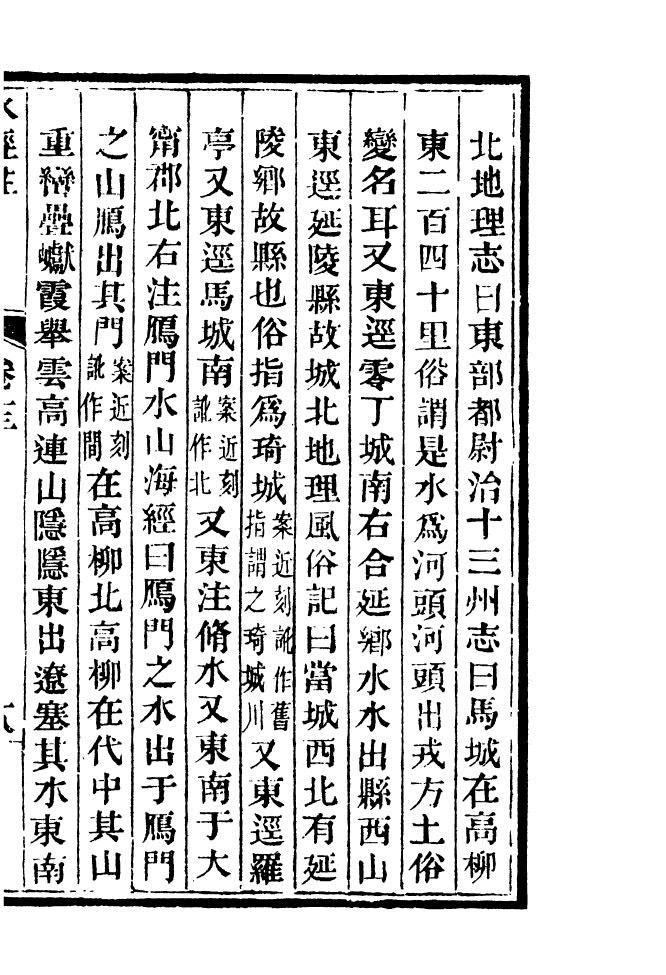 北地理志曰東部都尉治十三州志曰馬城在高柳
東二百四十里俗謂是水爲河頭河頭出戎方土俗
變名耳又東逕零丁城南右合延鄉水水出縣西山
東逕延陵縣故城北地理風俗記曰當城西北有延
陵鄉故縣也俗指爲琦城案近刻訛作舊指謂之琦城川又東逕羅
亭又東逕馬城南案近刻訛作北又東注脩水又東南于大
甯郡北右注鴈門水山海經曰鴈門之水出于鴈門
之山鴈出其門案近刻訛作間在高柳北高柳在代中其山
重巒疊巘霞舉雲高連山隱隱東出遼塞其水東南
水經注 卷十三